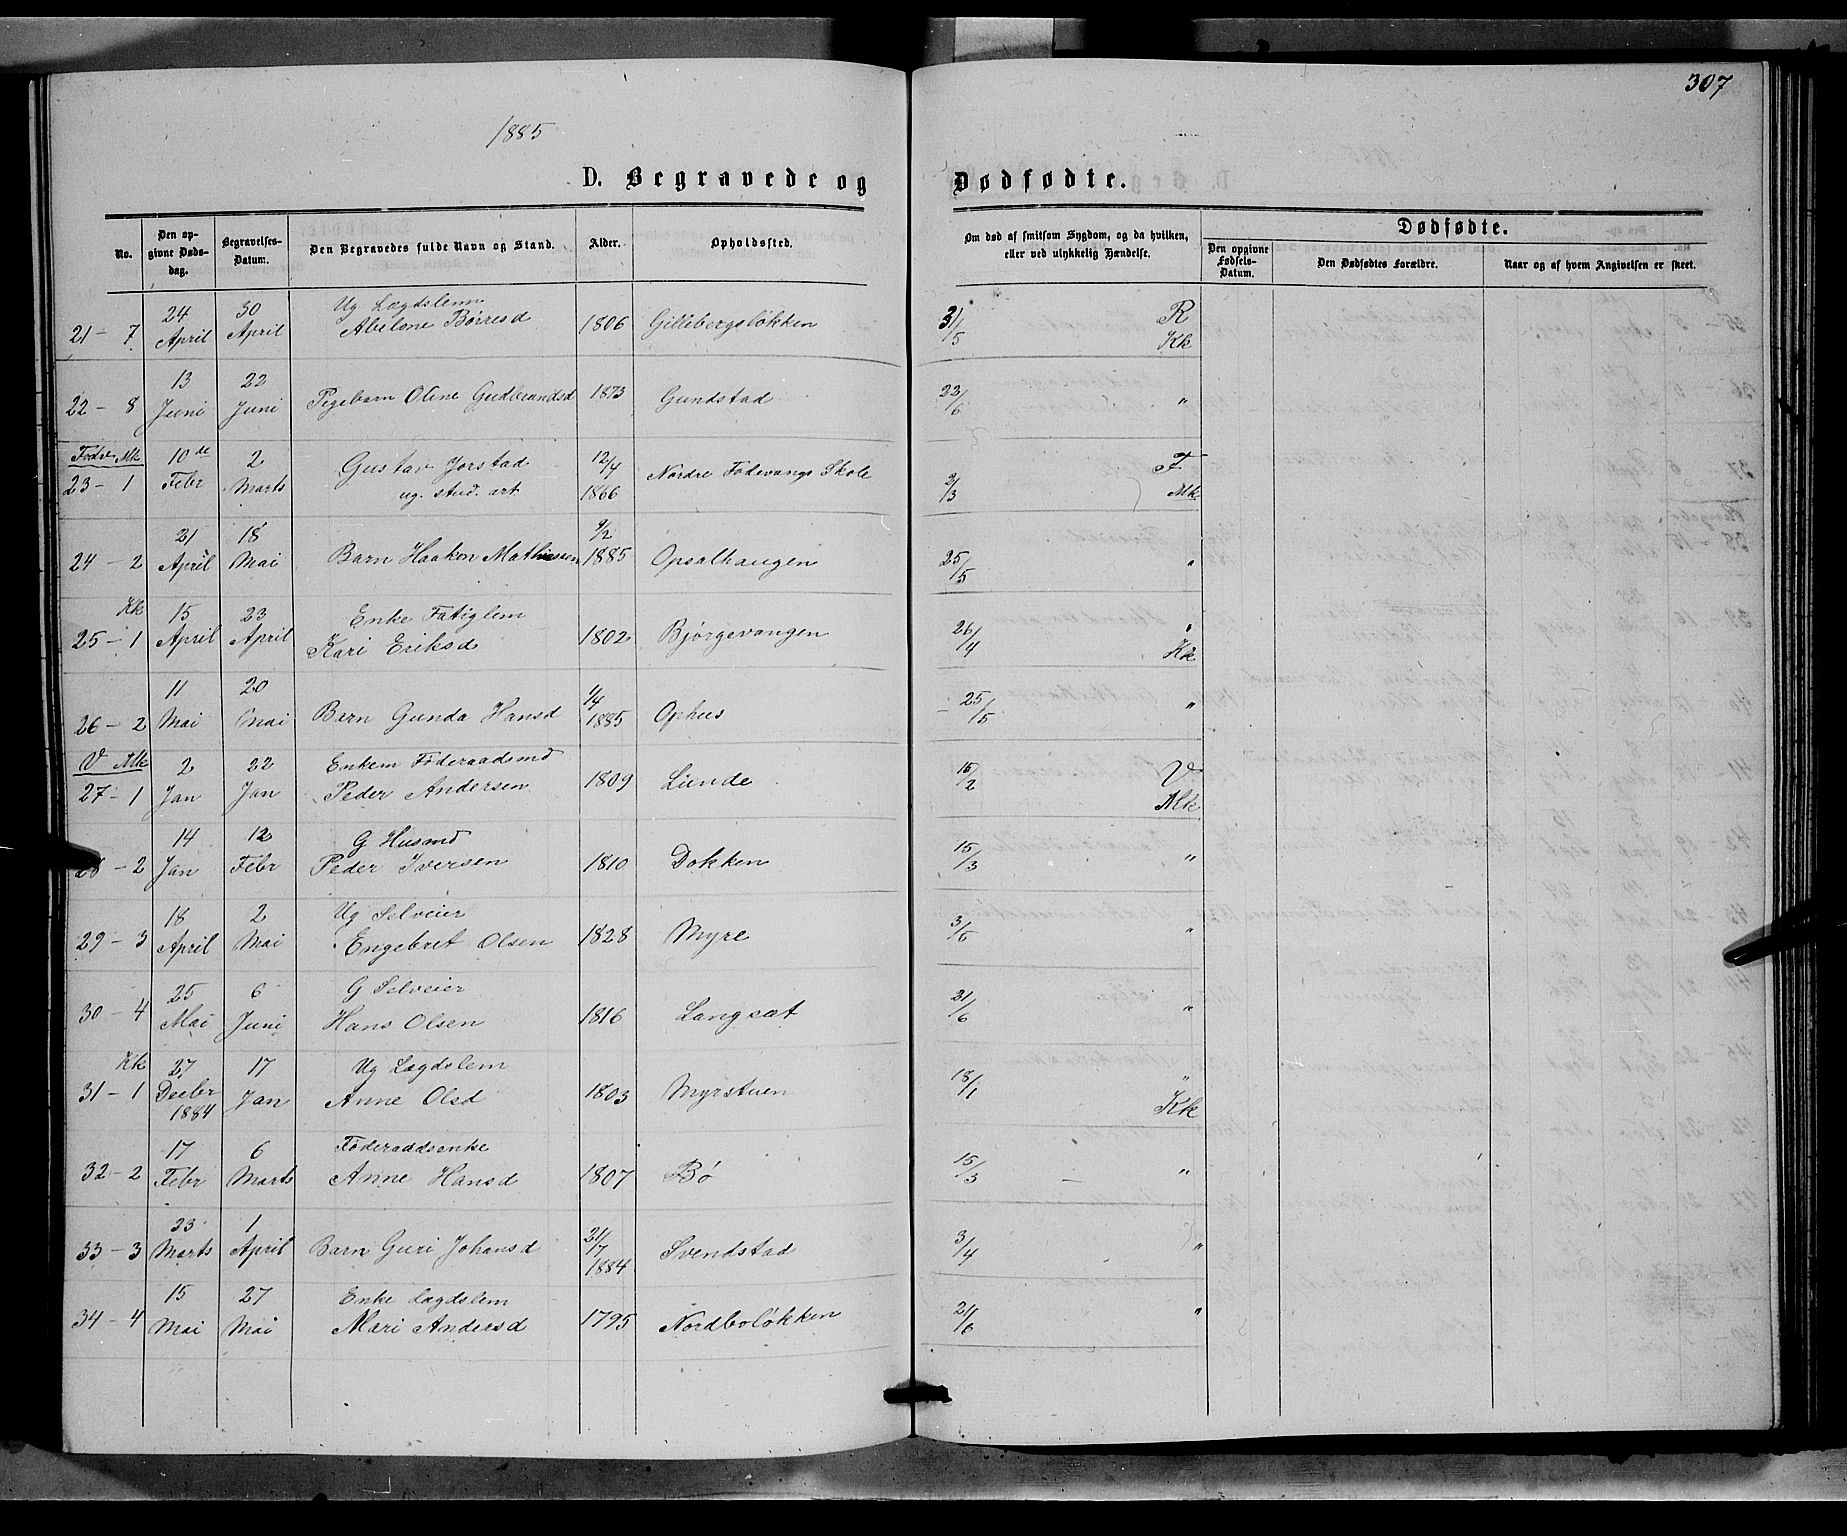 307
1885
D. Begravede og Dødfødte.
No.
Den opgivne Dødsdag.
Begravelses-Datum.
Den Begravedes fulde Navn og Stand.
Alder.
Opholdssted.
Om død af smitsom Sygdom, og da hvilken, eller ved ulykkelig Hændelse.
Dødfødte.
Den opgivne Fødsels-Datum.
Den Dødfødtes Forældre.
Naar og af hvem Angivelsen er skeet.
21 - 7 24 April 30 April Ug Lægdslem Abelone Børresd 1806 Gillebergsløkken 31/5 R Kk
22 - 8 13 Juni 22 Juni Pigebarn Oline Gudbrandsd 1873 Gundstad 22/6 "
Fodv Mk
23 - 1 10de Febr 2 Marts Gustav Jorstad ug. stud. art 12/4 1866 Nordre Fodvangs Skole 2/3 F Mk
24 - 2 21 April 18 Mai Barn Haakon Mathiesen 9/2 1885 Opsalhaugen 25/5 "
Kk
25 - 1 15 April 23 April Enke Fatiglem Kari Eriksd 1802 Bjørgevangen 26/4 " Kk
26 - 2 11 Mai 20 Mai Barn Gunda Hansd 1/4 1885 Ophus 25/5 "
V Mk
27 - 1 2 Jan 22 Jan Enkem Føderaadsmd Peder Andersen 1809 Lunde 15/2 V Mk
28 - 2 14 Jan 12 Febr G Husmd Peder Iversen 1810 Dokken 15/3 "
29 - 3 18 April 2 Mai Ug Selveier Engebret Olsen 1828 Myre 3/5 "
30 - 4 25 Mai 6 Juni G Selveier Hans Olsen 1816 Langsæt 21/6 "
Kk
31 - 1 27 Decbr 1884 17 Jan Ug Lægdslem Anne Olsd 1803 Myrstuen 18/1 " Kk
32 - 2 17 Febr 6 Marts Føderaadsenke Anne Hansd 1807 Bø 15/3 "
33 - 3 23 Marts 1 April Barn Guri Johansd 21/7 1884 Svendstad 3/4 "
34 - 4 15 Mai 27 Mai Enke Lægdslem Mari Andersd 1795 Nordboløkken 21/6 "